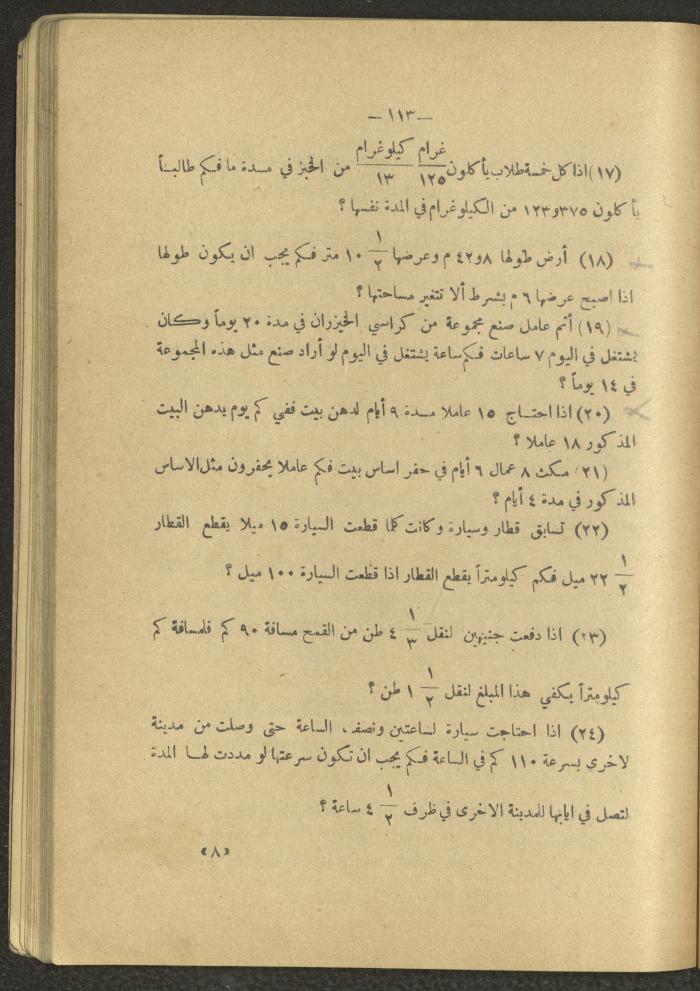 — ١١٣ —
(١٧) اذا كل خمسة طلاب يأكلون غرام ١٢٥ كيلوغرام ١٣ من الخبز في مدة ما فكم طالباً
يأكلون ٣٧٥و١٢٣ من الكيلوغرام في المدة نفسها ؟
(١٨) أرض طولها ٨و٤٢ م وعرضها ١/٢ ١٠ متر فكم يجب ان يكون طولها
اذا اصبح عرضها ٦ م بشرط ألا تتغير مساحتها ؟
(١٩) أتم عامل صنع مجموعة من كراسي الخيزران في مدة ٢٠ يوماً وكان
يشتغل في اليوم ٧ ساعات فكم ساعة يشتغل في اليوم لو أراد صنع مثل هذه المجموعة
في ١٤ يوماً ؟
(٢٠) اذا احتاج ١٥ عاملا مدة ٩ أيام لدهن بيت ففي كم يوم يدهن البيت
المذكور ١٨ عاملا ؟
(٢١) مكث ٨ عمال ٦ أيام في حفر اساس بيت فكم عاملا يحفرون مثل الاساس
المذكور في مدة ٤ أيام ؟
(٢٢) تسابق قطار وسيارة وكانت كلما قطعت السيارة ١٥ ميلا يقطع القطار
١/٢ ٢٢ ميل فكم كيلومتراً يقطع القطار اذا قطعت السيارة ١٠٠ ميل ؟
(٢٣) اذا دفعت جنيهين لنقل ١/٣ ٤ طن من القمح مسافة ٩٠ كم فلمسافة كم
كيلومتراً يكفي هذا المبلغ لنقل ١/٢ ١ طن ؟
(٢٤) اذا احتاجت سيارة لساعتين ونصف الساعة حتى وصلت من مدينة
لاخرى بسرعة ١١٠ كم في الساعة فكم يجب ان تكون سرعتها لو مددت لها المدة
لتصل في ايابها للمدينة الاخرى في ظرف ١/٢ ٤ ساعة ؟
«٨»